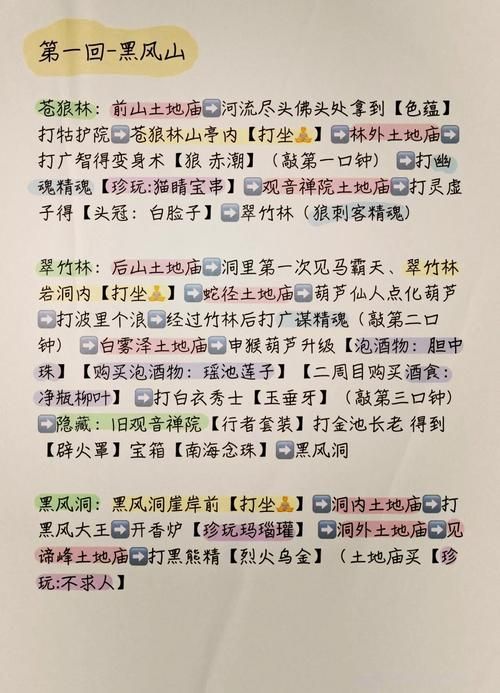 第一回-黑风山
苍狼林：前山土地庙➡️河流尽头佛头处拿到【色蕴】
打牯护院➡️苍狼林山亭内【打坐🧘】➡️林外土地庙➡️
打广智得变身术【狼 赤潮】（敲第一口钟）➡️打幽
魂精魂【珍玩:猫睛宝串】➡️观音禅院土地庙➡️打灵虚
子得【头冠：白脸子】➡️翠竹林（狼刺客精魂）
翠竹林：后山土地庙➡️洞里第一次见马霸天、翠竹林
岩洞内【打坐🧘】➡️蛇径土地庙➡️葫芦仙人点化葫芦
➡️打波里个浪➡️经过竹林后打广谋精魂（敲第二口
钟）➡️白雾泽土地庙➡️申猴葫芦升级【泡酒物：胆中
珠】【购买泡酒物：瑶池莲子】【二周目购买酒食：
净瓶柳叶】➡️打白衣秀士【玉垂牙】（敲第三口钟）
➡️隐藏：旧观音禅院【行者套装】打金池长老 得到
【辟火罩】宝箱【南海念珠】➡️黑风洞
黑风洞：黑风洞崖岸前【打坐🧘】➡️洞内土地庙➡️打
黑风大王➡️开香炉【珍玩玛瑙罐】➡️洞外土地庙➡️见
谛峰土地庙➡️打黑熊精【烈火乌金】（土地庙买【珍
玩:不求人】